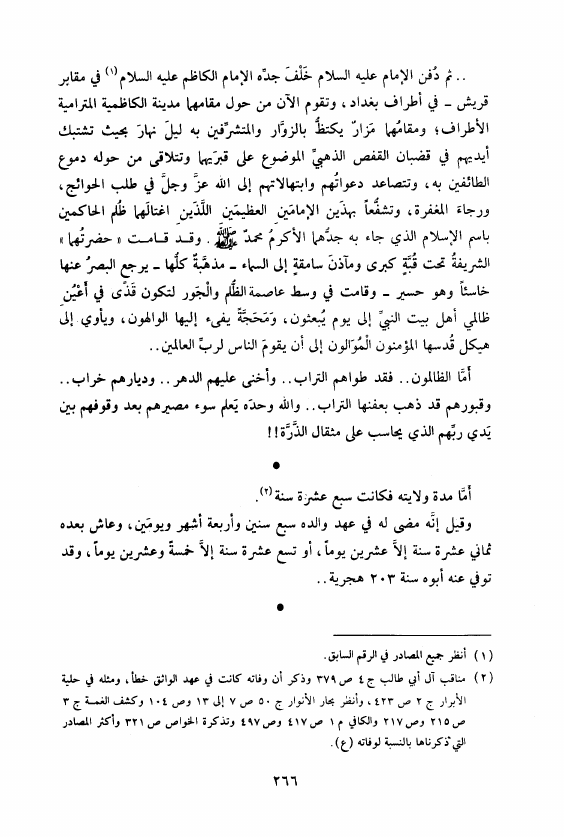 .. ثم دُفن الإمام عليه السلام خَلْفَ جدّه الإمام الكاظم عليه السلام(١) في مقابر
قريش ـ في أطراف بغداد، وتقوم الآن من حول مقامهما مدينة الكاظمية المترامية
الأطراف؛ ومقامُهما مَزارٌ يكتظُّ بالزوّار والمتشرِّفين به ليلَ نهارَ بحيث تشتبك
أيديهم في قضبان القفص الذهبيِّ الموضوع على قبرَيهما وتتلاقى من حوله دموع
الطائفين به، وتتصاعد دعواتُهم وابتهالاتهم إلى الله عزَّ وجلَّ في طلب الحوائج،
ورجاءَ المغفرة، وتشفُّعاً بهذَين الإمامَين العظيمَين اللَّذَين اغتالَهما ظُلم الحاكمين
باسم الإسلام الذي جاء به جدُّهما الأكرمُ محمدٌ ﷺ. وقد قامت «حضرتُهما»
الشريفةُ تحت قُبَّةٍ كبرى ومآذنَ سامقةٍ إلى السماء ـ مذهَّبةً كلُّها ـ يرجع البصرُ عنها
خاسئاً وهو حسير ـ وقامت في وسط عاصمة الظُّلم والْجَور لتكون قَذًى في أعْيُنِ
ظالمي أهل بيت النبيِّ إلى يوم يُبعثون، وَمَحَجَّةً يفيء إليها الوالهون، ويأوي إلى
هيكل قُدسها المؤمنون الْمُوَالون إلى أن يقومَ الناس لربِّ العالمين..
أمَّا الظالمون.. فقد طواهم التراب.. وأخنى عليهم الدهر.. وديارهم خراب..
وقبورهم قد ذهب بعفنها التراب.. والله وحدَه يَعلم سوء مصيرهم بعد وقوفهم بين
يَدي ربِّهم الذي يحاسب على مثقال الذَّرَّة!!
●
أمَّا مدة ولايته فكانت سبع عشرة سنة(٢).
وقيل إنَّه مضى له في عهد والده سبع سنين وأربعة أشهر ويومَين، وعاش بعده
ثماني عشرة سنة إلاَّ عشرين يوماً، أو تسع عشرة سنة إلاَّ خمسةً وعشرين يوماً، وقد
توفي عنه أبوه سنة ٢٠٣ هجرية..
●
(١) أنظر جميع المصادر في الرقم السابق.
(٢) مناقب آل أبي طالب ج ٤ ص ٣٧٩ وذكر أن وفاته كانت في عهد الواثق خطأ، ومثله في حلية
الأبرار ج ٢ ص ٤٢٣، وأنظر بحار الأنوار ج ٥٠ ص ٧ إلى ١٣ وص ١٠٤ وكشف الغمة ج ٣
ص ٢١٥ وص ٢١٧ والكافي م ١ ص ٤١٧ وص ٤٩٧ وتذكرة الخواص ص ٣٢١ وأكثر المصادر
التي ذكرناها بالنسبة لوفاته (ع).
٢٦٦